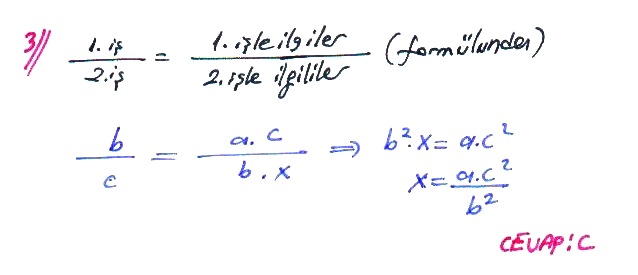 3// 1.iş / 2.iş = 1. işle ilgiler / 2. işle ilgililer (formülünden)
b / c = a.c / b.x ⇒ b².x = a.c²
x = a.c² / b²
CEVAP: C